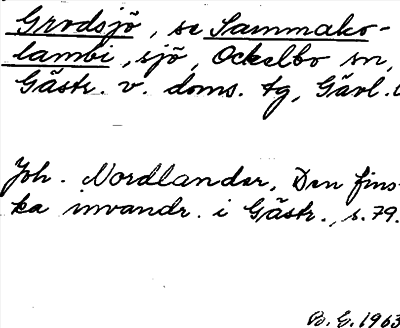 Grodsjö, se Sammako-
lambi, sjö, Ockelbo sn,
Gästr. v. doms. tg, Gävl.
Joh. Nordlander, Den fins-
ka invandr. i Gästr., s. 79.
B. E. 1963